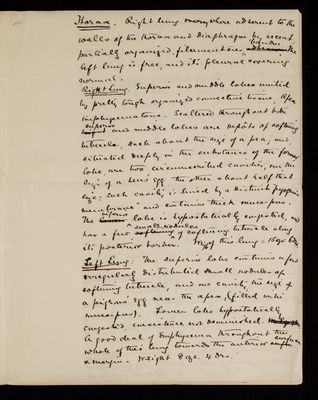 Thorax. Right lung everywhere adherent to the
walls of the thorax and diaphragm by recent
partially organized, filamentous, adhesions. The
left lung is free, and its pleural covering
normal.
Right Lung. Superior and middle lobes united
by pretty tough organized connective tissue. Apex
emphysematous. Scattered throughout both
superior and middle lobes are deposits of softening
tubercle, each about the size of a pea, and
situated deeply in the substance of the former
lobe, are two circumscribed cavities, one the
size of a hens egg the other about half that
size; each cavity is lined by a distinct pyogenic
membrane and contains thick mucopus.
The inferior lobe is hypostatically congested, and
has a few small nodules of softening tubercle along
its posterior border. Wgt of this lung = 15 ozs 6 drs.
Left Lung: The superior lobe contains a few
irregularly distributed small nodules of
softening tubercle, and one cavity the size of
a pigeons egg near the apex, (filled with
mucopus). Lower lobe hypostatically
congested consistence not diminished.
A good deal of Emphysema throughout the
whole of this lung towards the anterior surface
& margin. Weight 8 ozs. 4 drs.